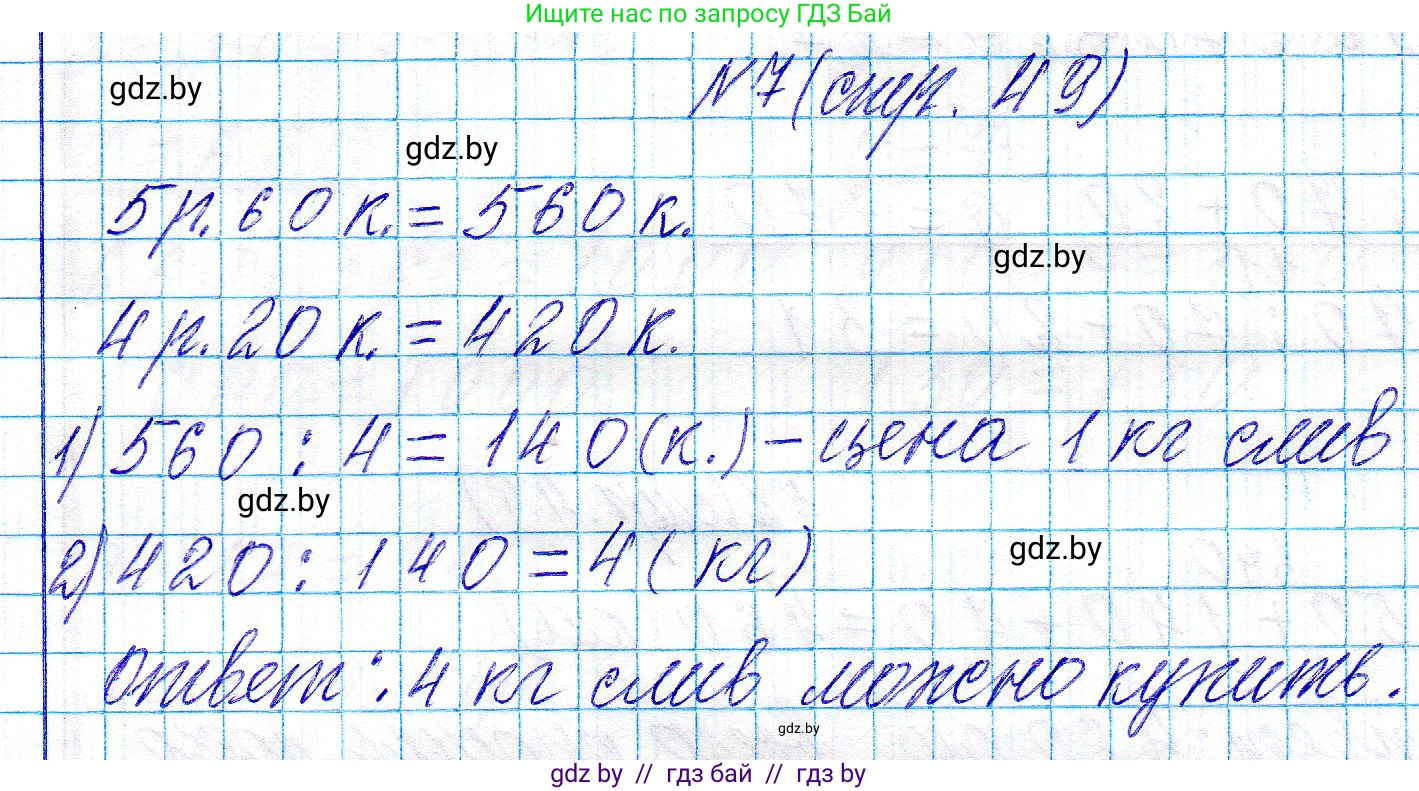 Ищите нас по запросу ГДЗ Бай
gdz.by
№7 (стр. 49)
gdz.by
5 р. 60 к. = 560 к.
gdz.by
4 р. 20 к. = 420 к.
1) 560 : 4 = 140 (к.) – цена 1 кг слив
gdz.by
2) 420 : 140 = 4 (кг)
gdz.by
ответ: 4 кг слив можно купить.
gdz.by
gdz by // гдз бай // гдз by